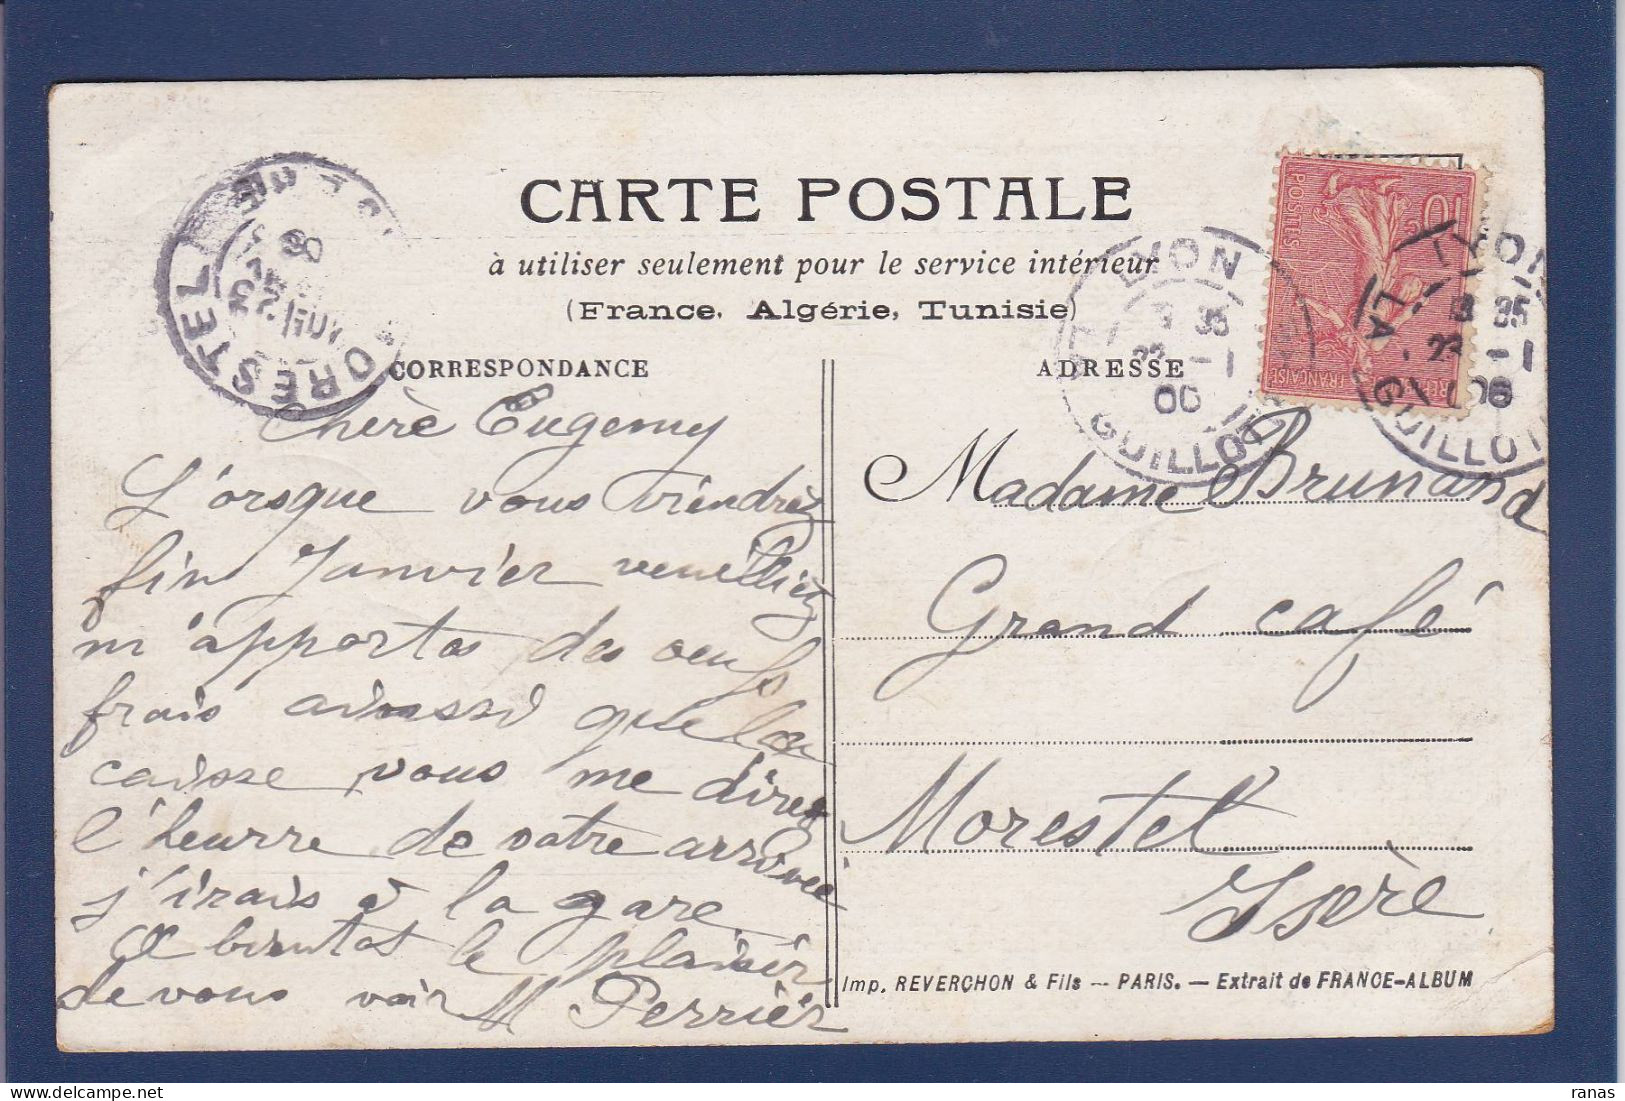 CARTE POSTALE
à utiliser seulement pour le service intérieur
(France, Algérie, Tunisie)
CORRESPONDANCE
ADRESSE
Chère Eugemy
L'orsque vous viendrèz
fin Janvier veuilliez
m'apportas des oeufs
frais aiussi que la
caisse vous me direz
l'heurre de votre arrivée
j'irais à la gare
A bientot le plaisir
de vous voir M Perrier
Madame Brunand
Grand café
Morestel
Isère
Imp. REVERCHON & Fils — PARIS. — Extrait de FRANCE-ALBUM
10
POSTES
LYON
LA GUILLOT
35
23 - 1
06
LYON
GUILLOT
35
MORESTEL
06
ranas